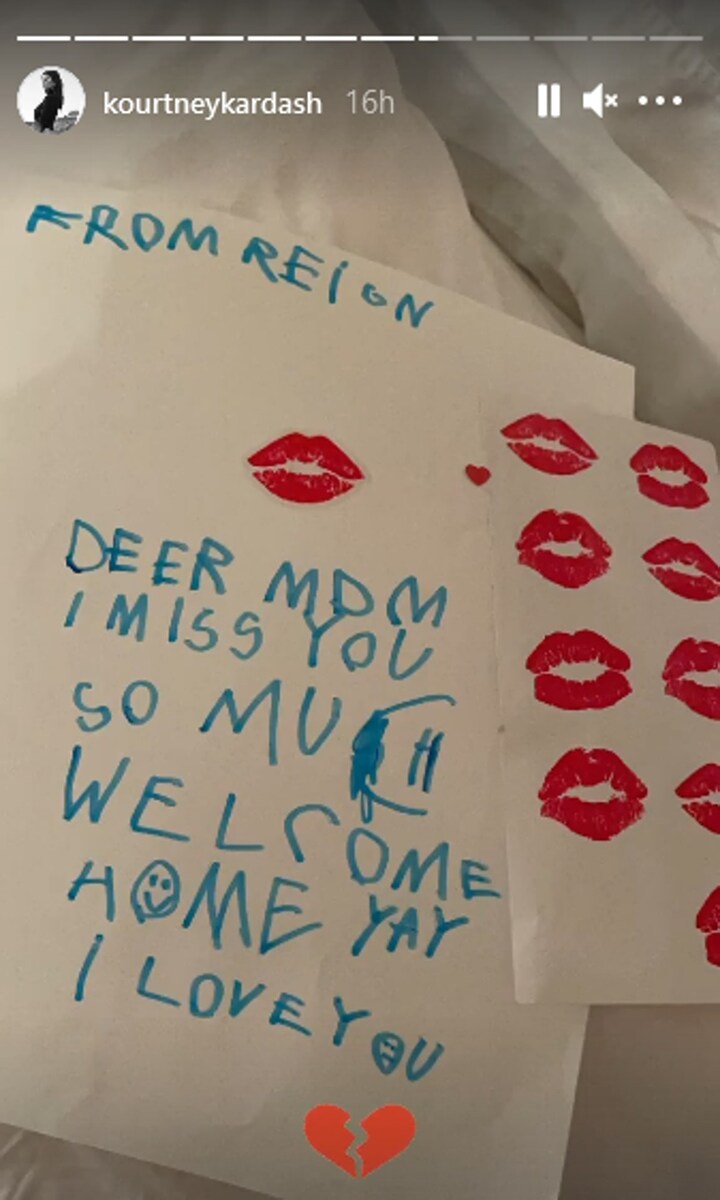 kourtneykardash 16h
FROM REIGN
DEER MOM
I MISS YOU
SO MUCH
WELCOME
HOME YAY
I LOVE YOU